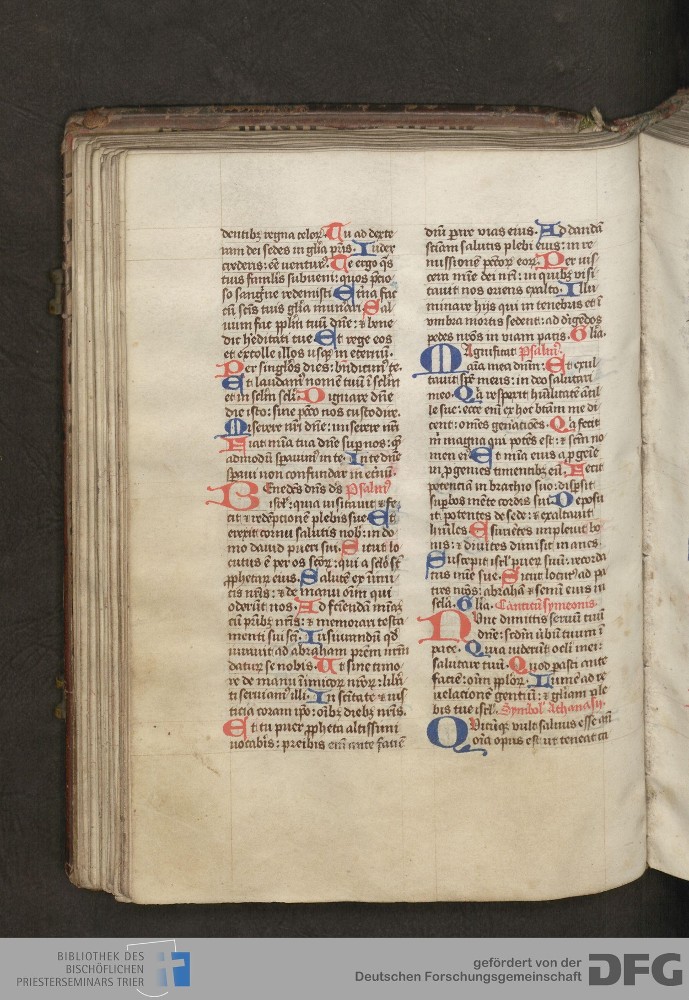 dentibꝫ regna celoꝝ. Tu ad dexte
ram dei sedes in gl̄ia pr̄is. Iudex
crederis: eē venturꝰ. Te ergo q̄s
tuis famlis subueni: quos p̄cio
so sangīne redemisti. Etna fac
cū scīs tuis gl̄ia munari. Sal
uum fac ꝑplm̄ tuū dn̄e: ⁊ bene
dic hēditati tue. Et rege eos
et extolle illos usqꝫ in eternū.
Per singl̄os dies: bn̄dicimꝰ te.
Et laudamꝰ nomē tuū ī sclm̄
et in sclm̄ scli. Dignare dn̄e
die isto: sine pc̄co nos custodire.
Miserere nr̄i dn̄e: miserere nr̄i
Fiat mīa tua dn̄e suꝑ nos: qͣ
admodū sꝑauimꝰ in te. In te dn̄e
sꝑaui non confundar in etnū.
BEnedcs dn̄s ds Psalmꝰ
isrl̄: quia visitauit ⁊ fe
cit ⁊ redēptionē plebis sue. Et
erexit cornu salutis nob̄: in do
mo dauid pueri sui. Sicut lo
cutus ē per os sctoꝝ: qui a sclo st̄
ꝓphetaꝝ eius. Salutē ex īimi
cis nr̄is: ⁊ de manu oīm qui
oderūt nos. Ad faciendā mīaꝫ
cū pr̄ibꝫ nr̄is: ⁊ memorari testa
menti sui scī. Iusiurandū qd̄
iurauit ad abraham prēm nr̄m
daturꝫ se nobis. Ut sine timo
re de manu īimicoꝝ nr̄oꝝ: liba
ti seruiamꝰ illi. In scītate ⁊ ius
ticia coram ip̄o: oībꝫ diebꝫ nr̄is.
Et tu puer ꝓpheta altissimi
uocabis: preibis enī ante faciē
dn̄i pare vias eius. Ad dandā
scīam salutis plebi eius: in re
missionē pctōꝝ eoꝝ. Per vis
cera mīe dei nr̄i: in quibꝫ visi
tauit nos oriens exalto. Illu
minare hijs qui in tenebris et ī
vmbra mortis sedent: ad dīgēdos
pedes nr̄os in viam pacis. Glīa.
MAgnificat Psalmꝰ.
aīa mea dnm̄: Et exul
tauit sp̄c meus: in deo salutari
meo. Qa respexit huīlitatē ancil
le sue: ecce enī ex hoc btām me di
cent: oēs geniatiōes. Qa fecit
mͥ magna qui potēs est: ⁊ scm̄ no
men eiꝰ. Et mīa eius a ꝓgeīe
ī ꝓgenies timentibꝫ eū. Fecit
potenciā in brachio suo: disꝑsit
suꝑbos mēte cordis sui. Deposu
it potentes de sede: ⁊ exaltauit
huīles. Esuriētes impleuit bo
nis: ⁊ diuites dimisit inanes
Suscepit isrl̄ puerꝫ suū: recorda
tus mīe sue. Sicut locutꝰ ad pa
tres nr̄os: abrahā ⁊ semī eius in
scl̄a. Glīa. Canticū symeonis.
NUnc dimittis seruū tuū
dn̄e: scdm̄ ūbū tuum ī
pace. Quia uiderūt ocli mei:
salutare tuū. Quod parasti ante
faciē: oīm ꝑploꝝ. Lumē ad re
uelacionē gentiū: ⁊ glīam ple
bis tue isrl̄. Symbolꝰ Athanasij.
QUicūqꝫ vult saluus esse aū
oīa opus est: ut teneat ca
BIBLIOTHEK DES
BISCHÖFLICHEN
PRIESTERSEMINARS TRIER
gefördert von der
Deutschen Forschungsgemeinschaft
DFG